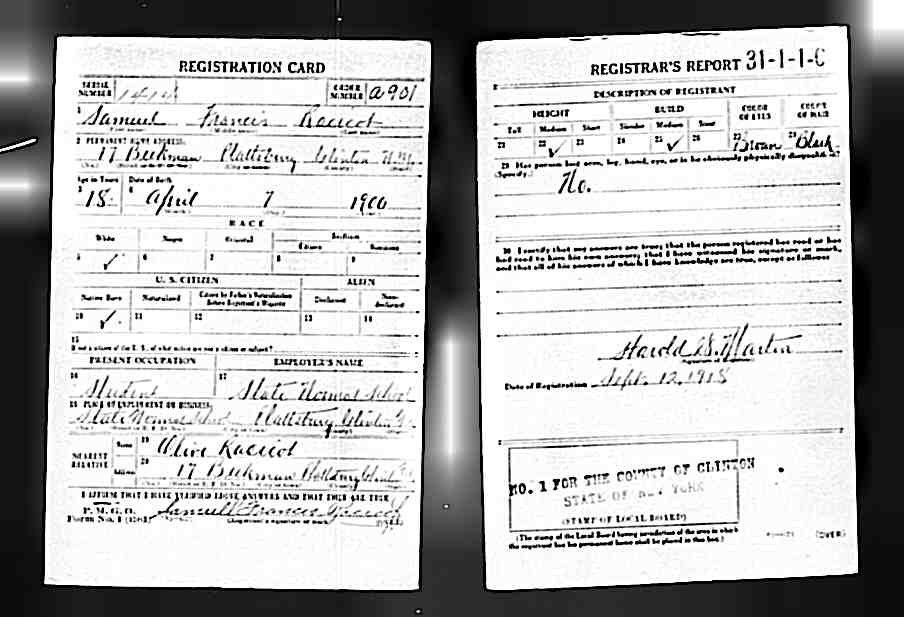 REGISTRATION CARD
SERIAL NUMBER
ORDER NUMBER A 901
1 Samuel Francis Racicot
(First name) (Middle name) (Last name)
2 PERMANENT HOME ADDRESS:
17 Beekman Plattsburg Clinton N.Y.
(No.) (City or town) (County) (State)
Age in Years Date of Birth
3 18 4 April 7 1900
(Month.) (Day.) (Year.)
RACE
White Negro Oriental Indian
Citizen Noncitizen
5 ✓ 6 7 8 9
U. S. CITIZEN ALIEN
Native Born Naturalized Citizen by Father's Naturalization Before Registrant's Majority Declarant Non-declarant
10 ✓ 11 12 13 14
15
If not a citizen of the U. S., of what nation are you a citizen or subject?
PRESENT OCCUPATION EMPLOYER'S NAME
16 Student 17 State Normal School
18 PLACE OF EMPLOYMENT OR BUSINESS:
State Normal School Plattsburg Clinton N.Y.
(No.) (City or town) (County)
NEAREST RELATIVE
Name 19 Olive Racicot
Address 20 17 Beekman Plattsburg Clinton N.Y.
I AFFIRM THAT I HAVE VERIFIED ABOVE ANSWERS AND THAT THEY ARE TRUE
P. M. G. O.
Form No. 1 Samuel Francis Racicot
(Registrant's signature or mark)
REGISTRAR'S REPORT 31-1-1-C
DESCRIPTION OF REGISTRANT
HEIGHT BUILD COLOR OF EYES COLOR OF HAIR
Tall Medium Short Slender Medium Stout
21 22 ✓ 23 24 25 ✓ 26 27 Brown 28 Black
29 Has person lost arm, leg, hand, eye, or is he obviously physically disqualified?
(Specify.)
No.
30 I certify that my answers are true; that the person registered has read or has
had read to him his own answers; that I have witnessed his signature or mark,
and that all of his answers of which I have knowledge are true, except as follows:
Harold S. Martin
Date of Registration Sept. 12, 1918
NO. 1 FOR THE COUNTY OF CLINTON
STATE OF NEW YORK
(STAMP OF LOCAL BOARD)
(The stamp of the Local Board having jurisdiction of the area in which
the registrant has his permanent home shall be placed in this box.)
(OVER)